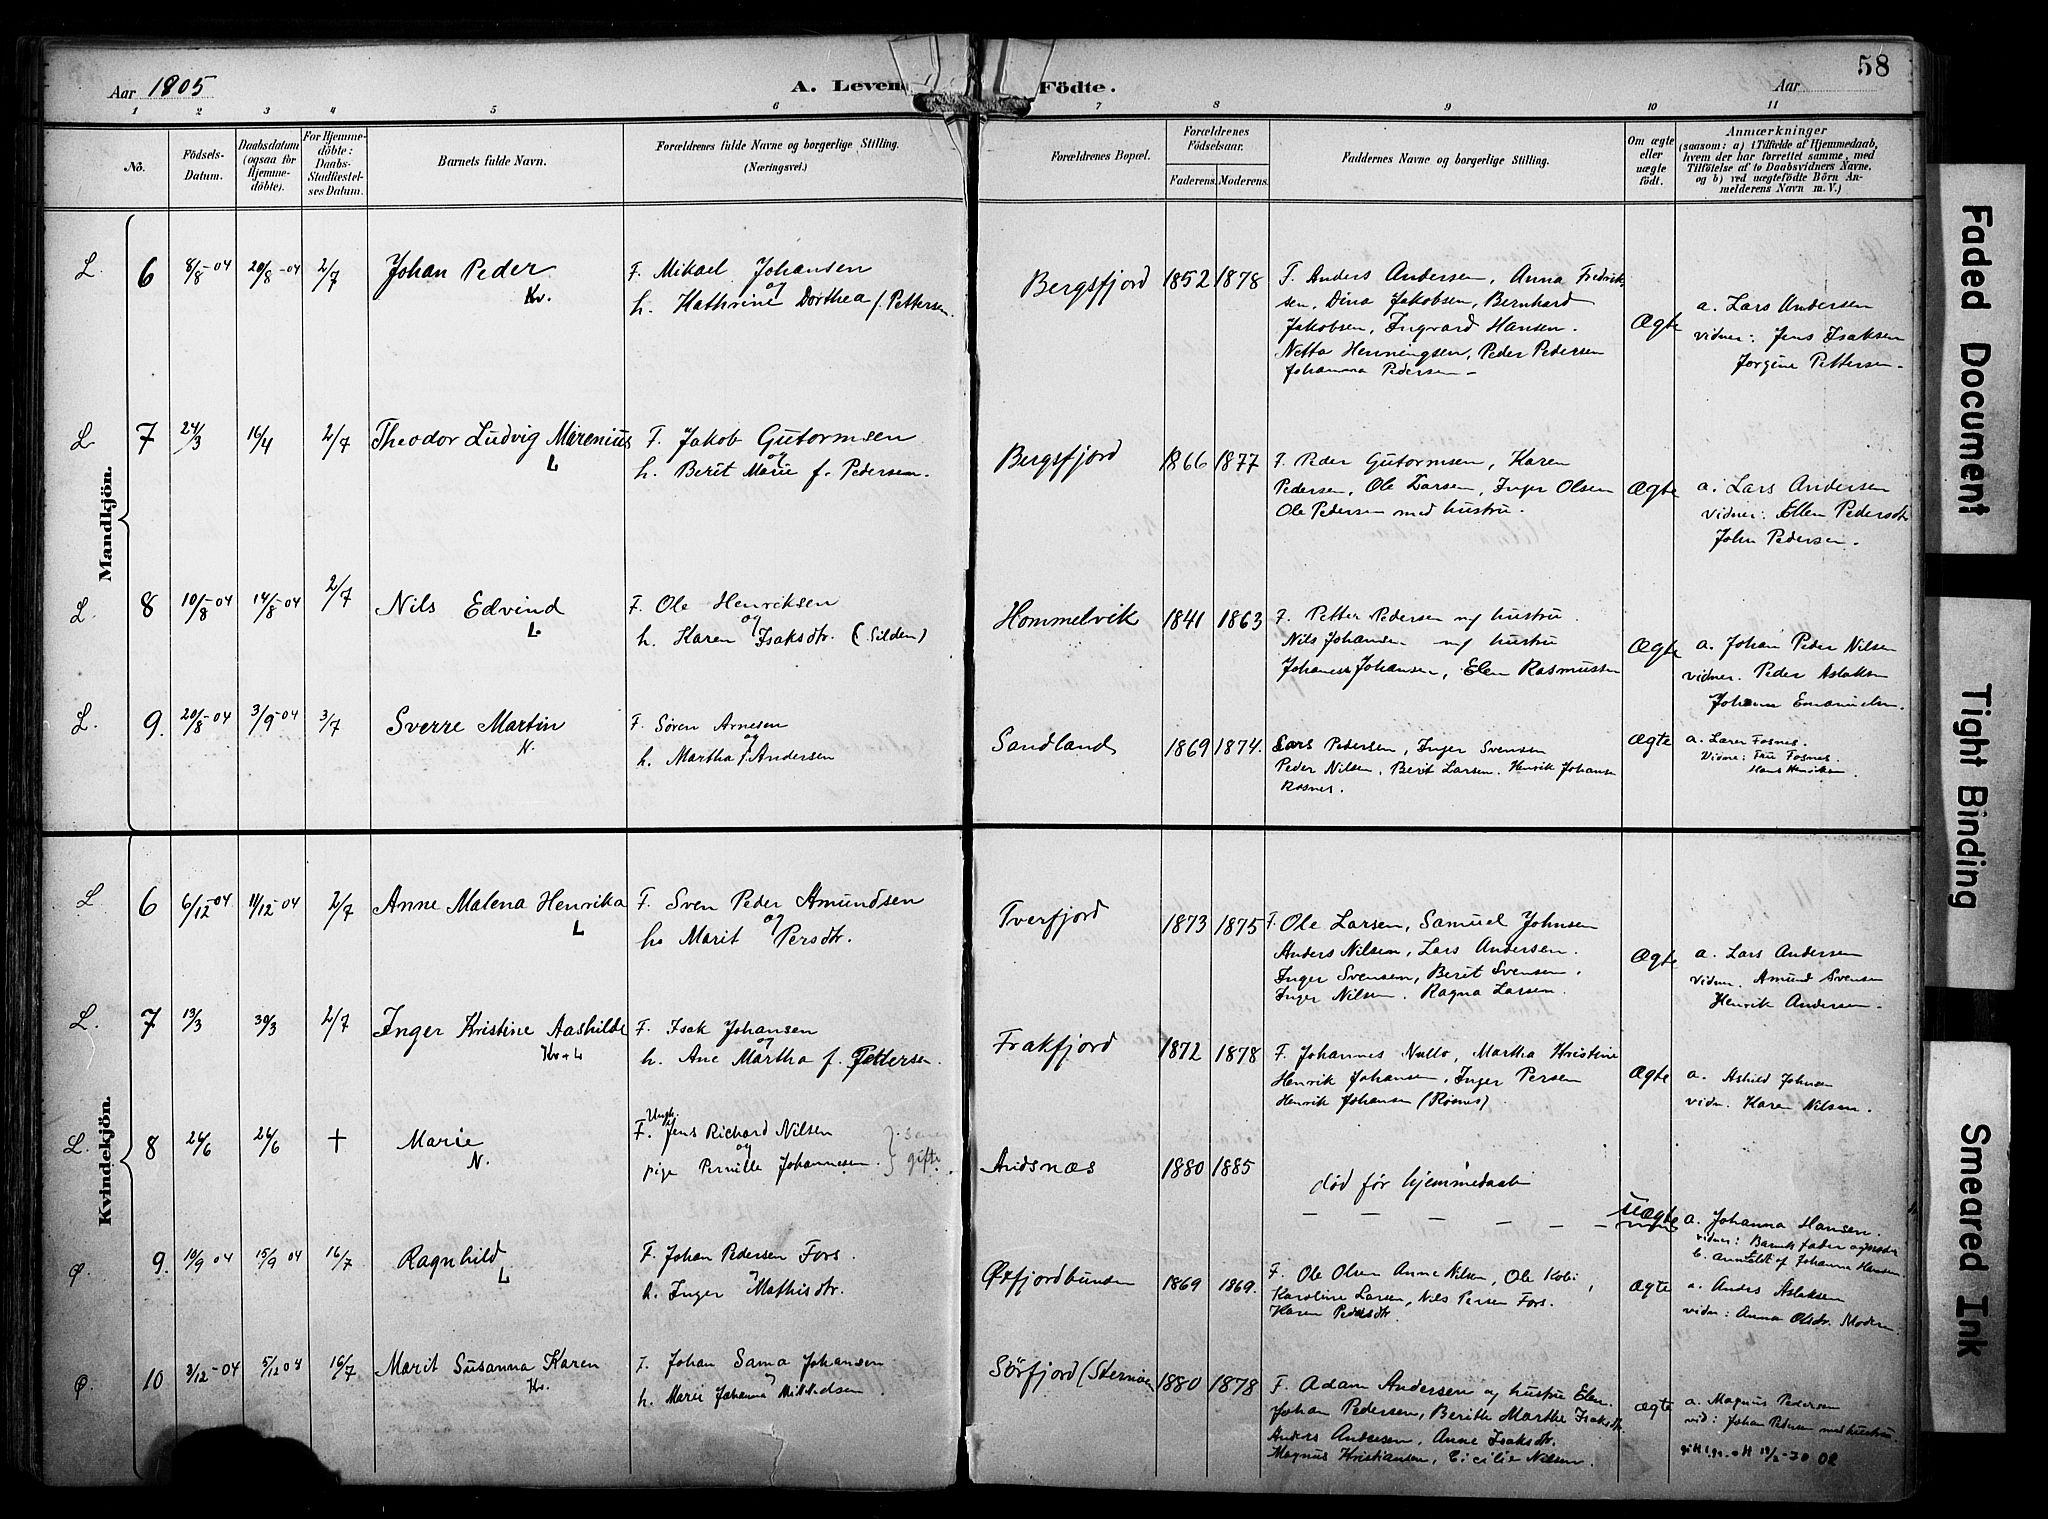 58
Aar 1905
A. Levende Födte.
Aar
1 2 3 4 5 6 7 8 9 10 11
Nö.
Födsels-Datum.
Daabsdatum (ogsaa for Hjemmedöbte).
For Hjemmedöbte: Daabs-Stadfæstelses Datum.
Barnets fulde Navn.
Forældrenes fulde Navne og borgerlige Stilling.
(Næringsvei.)
Forældrenes Bopæl.
Forældrenes Födselsaar.
Faderens. Moderens.
Faddernes Navne og borgerlige Stilling.
Om ægte eller uægte födt.
Anmærkninger
(saasom: a) i Tilfælde af Hjemmedaab, hvem der har forrettet samme, med Tilföielse af to Daabsvidners Navne, og b) ved uægtefödte Börn Anmelderens Navn m. V.)
Mandkjön.
L. 6 8/8-04 20/8-04 2/7 Johan Peder
Kv.
F. Mikael Johansen
og
h. Kathrine Dorthea f. Pettersen.
Bergsfjord 1852 1878
F. Anders Andersen, Anna Fredrik
sen, Dina Jakobsen, Bernhard
Jakobsen, Ingvard Hansen.
Netta Henningsen, Peder Pedersen
Johanna Pedersen -
Ægte
a. Lars Andersen
vidner: Jens Isaksen
Jørgine Pettersen.
L 7 24/3 16/4 2/7 Theodor Ludvig Marenius
L
F. Jakob Gutormsen
og
h. Berit Marie f. Pedersen.
Bergsfjord 1866 1877
F. Peder Gutormsen, Karen
Pedersen, Ole Larsen, Inger Olsen
Ole Pedersen med hustru.
Ægte
a. Lars Andersen
vidner: Ellen Pedersdt
John Pedersen.
L. 8 10/8-04 14/8-04 2/7 Nils Edvind
L.
F. Ole Henriksen
og
h. Karen Isaksdtr. (Silden)
Hommelvik 1841 1863
F. Petter Pedersen m/ hustru.
Nils Johansen m/ hustru
Johannes Johansen, Elen Rasmussen
Ægte
a. Johan Peder Nilsen
vidner. Peder Aslaksen
Johan Emanuelsn.
L. 9. 20/8-04 3/9-04 3/7 Sverre Martin
N.
F. Søren Arnesen
og
h. Martha f. Andersen
Sandland 1869 1874.
Lars Pedersen, Inger Svensen
Peder Nilsen, Berit Larsen. Henrik Johanse
Rosnes.
Ægte
a. Lærer Fosnes.
Vidne: Fru Fosnes.
Hans Henriksen.
Kvindekjön.
L 6 6/12-04 11/12-04 2/7 Anne Malena Henrika
L
F. Sven Peder Amundsen
og
h. Marit Persdtr.
Tverfjord 1873 1875
F. Ole Larsen, Samuel Johnsen
Anders Nilsen, Lars Andersen.
Inger Svensen, Berit Svensen,
Inger Nilsen. Ragna Larsen.
Ægte
a. Lars Andersen
vidn. Amund Svensen
Henrik Andersen.
L. 7 13/3 30/3 2/7 Inger Kristine Aashilde
Kv+L
F. Isak Johansen
og
h. Ane Martha f. Pettersen.
Frakfjord 1872 1878
F. Johannes Nullo, Martha Kristine
Henrik Johansen, Inger Persen
Henrik Johansen (Rosnes).
Ægte
a. Ashild Johnsen
vidn. Karen Nilsen.
L. 8 26/6 26/6 + Marie
N.
Ungk.
F. Jens Richard Nilsen
og
pige Pernille Johannesen.
gifte
Andsnæs 1880 1885
død før hjemmedaab
uægte
a. Johanna Hansen.
vidner: Barnets fader og moder
b. Anmeldt af Johanna Hansen.
Ø. 9. 10/9 04 15/9 04 16/7 Ragnhild
L
F. Johan Pedersen Fors.
og
h. Inger Mathisdtr.
Øxfjordbunden 1869 1869.
F. Ole Olsen Anne Nilsen, Ole Kobi,
Karoline Larsen, Nils Persen Fors.
Karen Pedersdtr.
Ægte
a. Anders Aslaksen
vidn: Anna Olsdtr. Moder
Ø. 10 3/12-04 5/12 04 16/7 Marit Susanna Karen
Kv.
F. Johan Sama Johansen
og
h. Marie Johanna Mikkelsen
Sörfjord (Stern 1880 1878
F. Adam Andersen og hustru Elen.
Johan Pedersen, Berith Marthe Isaksdtr.
Anders Andersen, Anne Isaksdtr.
Magnus Kristiansen, Cicilie Nilsen.
Ægte
a. Magnus Pedersen
vid: Johan Pedersen med hustru
Faded Document
Tight Binding
Smeared Ink